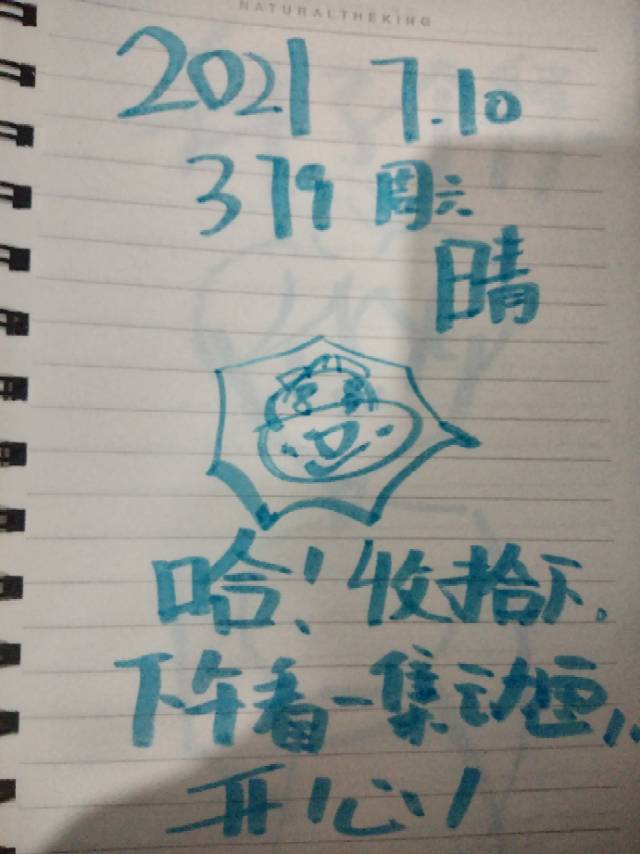 NATURALTHEKING
2021 7.10
379 周六
晴
哈！收拾下。
下午看一集动画，
开心！